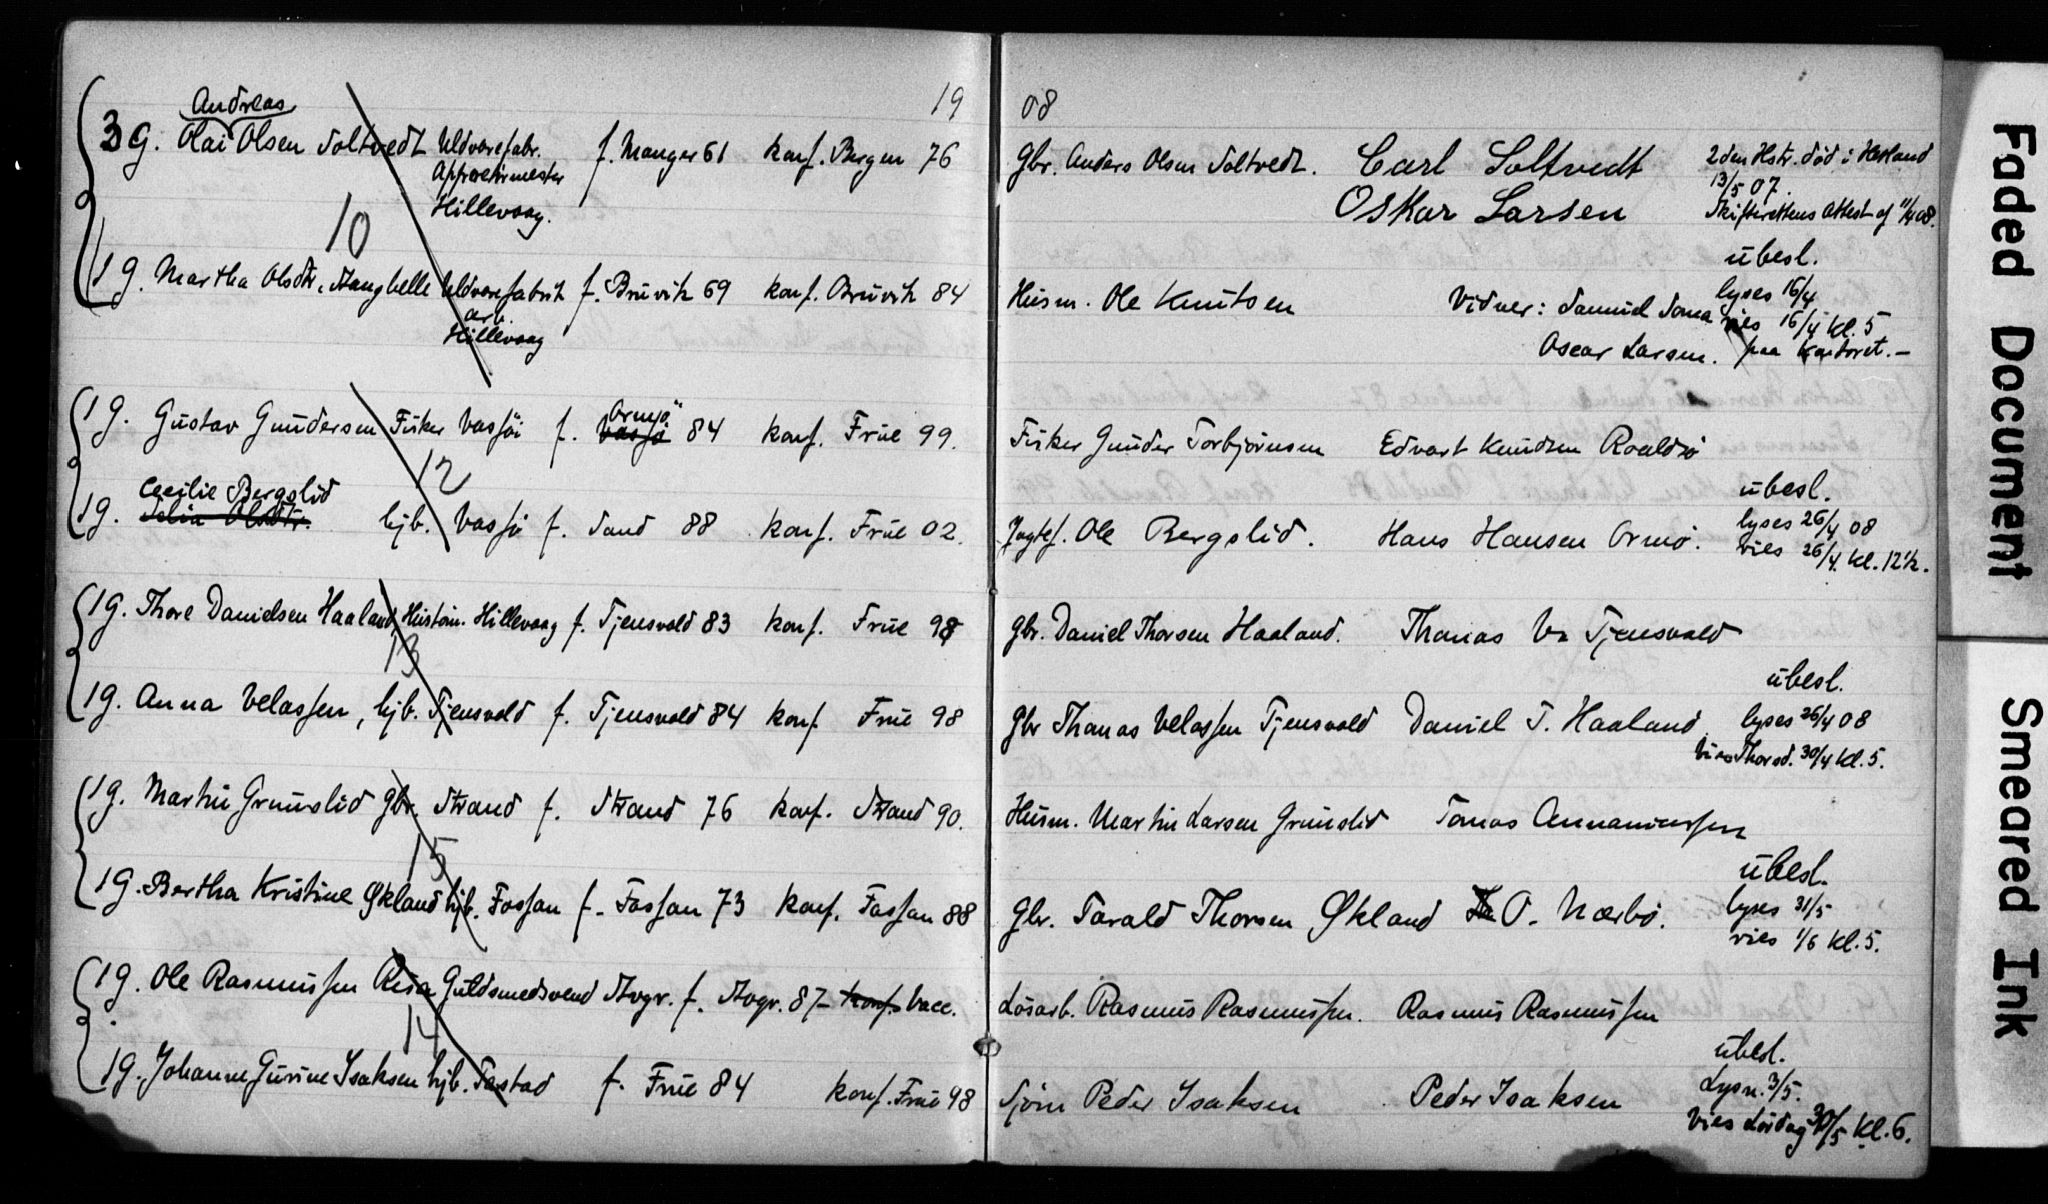 19 08
Andreas
3 G. Olai Olsen Soltvedt Uldvarefabr. f. Manger 61 konf. Bergen 76 Gbr. Anders Olsen Soltvedt. Carl Soltvedt 2den Hstr. død i Hetland
Appreturmester 13/5 07.
Hillevaag. Oskar Larsen Skifterettens Attest af 11/4 08.
10
ubesl.
1 G. Martha Olsdtr. Stanghelle Uldvarefabrik f. Bruvik 69 konf. Bruvik 84 Husm. Ole Knutsen Vidner: Samuel Soma lyses 16/4
arb. vies 16/4 kl. 5
Hillevaag Oscar Larsen. paa kontoret.-
1 G. Gustav Gundersen Fisker Vassøi f. Vassø Ormø 84 konf. Frue 99. Fisker Gunder Torbjørnsen Edvart Knudsen Roaldsø
12
ubesl.
Cecilie Bergslid
1 G. Selia Olsdtr. hjb. Vassø f. Sand 88 konf. Frue 02. Jagtef. Ole Bergslid. Hans Hansen Ormø. lyses 26/4 08
vies 26/4 kl. 12½.
1 G. Thore Danielsen Haaland, Hustøm. Hillevaag f. Tjensvold 83 konf. Frue 98 Gbr. Daniel Thorsen Haaland. Thomas V. Tjensvold
13
ubesl.
1 G. Anna Velassen, hjb. Tjensvold f. Tjensvold 84 konf Frue 98 Gbr Thomas Velassen Tjensvold Daniel T. Haaland lyses 26/4 08
Vies Thorsd. 30/4 kl. 5.
1 G. Martin Grunslid Gbr. Strand f. Strand 76 konf. Strand 90. Husm. Martin Larsen Grunslid Tomas Annaniassen
15
ubesl.
1 G. Bertha Kristine Økland hjb. Fossan f. Fossan 73 konf. Fossan 88 Gbr. Tarald Thorsen Økland O. Nærbø. lyses 31/5
vies 1/6 kl. 5.
1 G. Ole Rasmussen Risa Guldsmedsvend Stvgr. f. Stvgr. 87 konf. Vacc. Løsarb. Rasmus Rasmussen. Rasmus Rasmussen
14
ubesl.
1 G. Johanne Gurine Isaksen hjb. Tastad f. Frue 84 konf. Frue 98 Sjøm Peder Isaksen Peder Isaksen Lysn. 3/5.
Vies Lørdag 30/5 kl. 6.
Faded Document
Smeared Ink